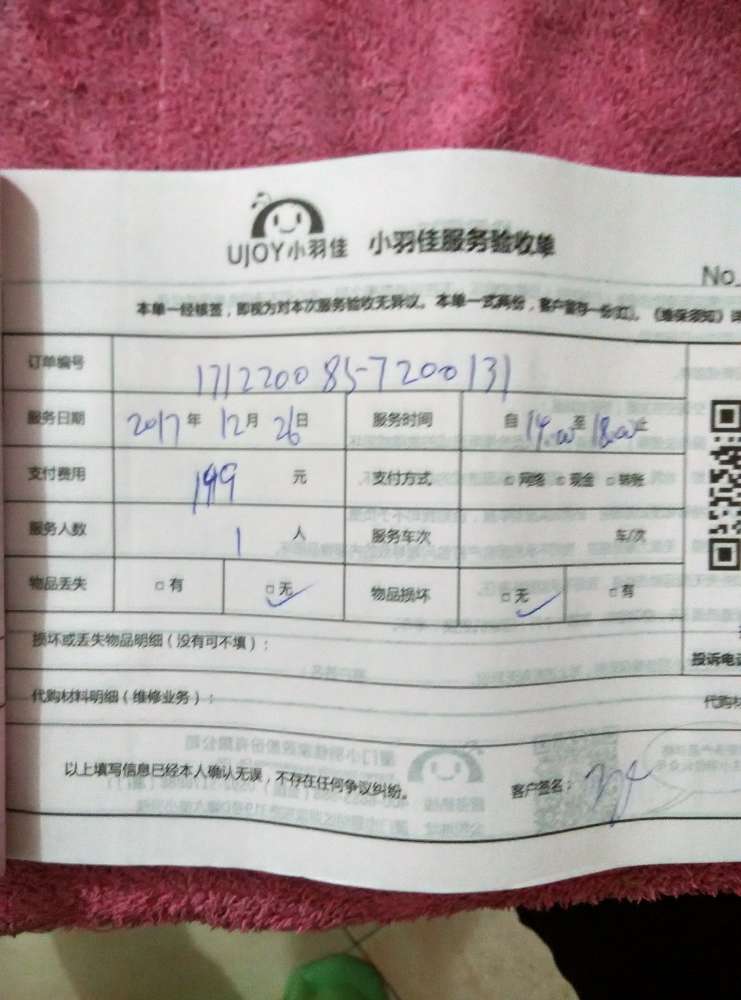 UJOY小羽佳 小羽佳服务验收单
No.
本单一经核签，即视为对本次服务验收无异议。本单一式两份，客户留存一份(红)。《维保须知》详
订单编号 1712200857200131
服务日期 2017年12月26日 服务时间 自14:00至18:00止
支付费用 199元 支付方式 □网络 □现金 □转账
服务人数 1人 服务车次 车/次
物品丢失 □有 □无 物品损坏 □无 □有
损坏或丢失物品明细（没有可不填）：
投诉电
代购材料明细（维修业务）： 代购材
以上填写信息已经本人确认无误，不存在任何争议纠纷。 客户签名：